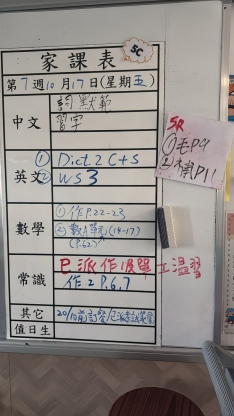 家課表
SC
第7週10月17日(星期五)
中文
詞默範
習字
英文
① Dict.2 C+S
② WS3
數學
① 作P.22-23
② 數A單元(14-17)
(P.62)
常識
已派作假單工溫習
作2 P.6,7
其它
值日生
SR
①毛P9
P11